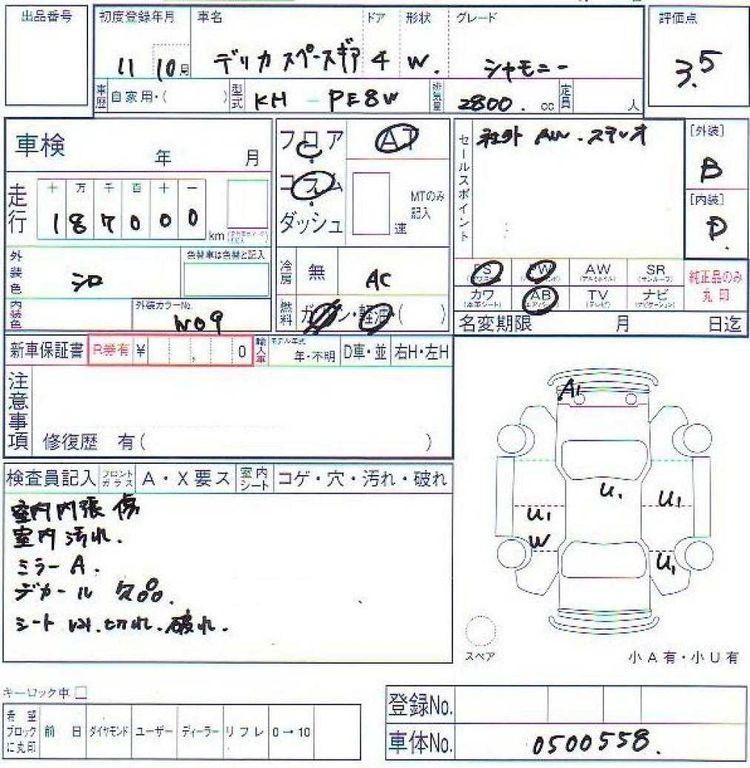 出品番号
初度登録年月 車名 ドア 形状 グレード 評価点
11 10月 デリカ スペースギア 4 W. シャモニー 3.5
車歴 自家用・( ) 型式 KH - PE8W 排気量 2800. cc 定員 人
車検 年 月
フロア AT
コラム
ダッシュ
MTのみ記入
速
セールスポイント
社外 AW. ステレオ
[外装]
B
[内装]
D.
走行 十 万 千 百 十 一
187000 km
外装色 シロ 色替車は色替と記入
内装色 外装カラーNo. W09
冷房 無 AC
燃料 ガソリン・軽油 ( )
PS PW AW SR
カワ AB TV ナビ
(本革シート) (エアバッグ) (テレビ) (ナビゲーション)
純正品のみ丸印
名変期限 月 日迄
新車保証書 R券有 ¥ , 0 輸入車 モデル年式 年・不明 D車・並 右H・左H
注意事項
修復歴 有( )
検査員記入 フロントガラス A・X要ス 室内シート コゲ・穴・汚れ・破れ
室内内張傷
室内汚れ.
ミラーA.
デカール 欠品.
シート 切れ. 破れ.
A1
U1
U1
U1
W
U1
スペア
小A有・小U有
キーロック中
希望ブロックに丸印 前日 ダイヤモンド ユーザー ディーラー リフレ 0→10
登録No.
車体No. 0500558.